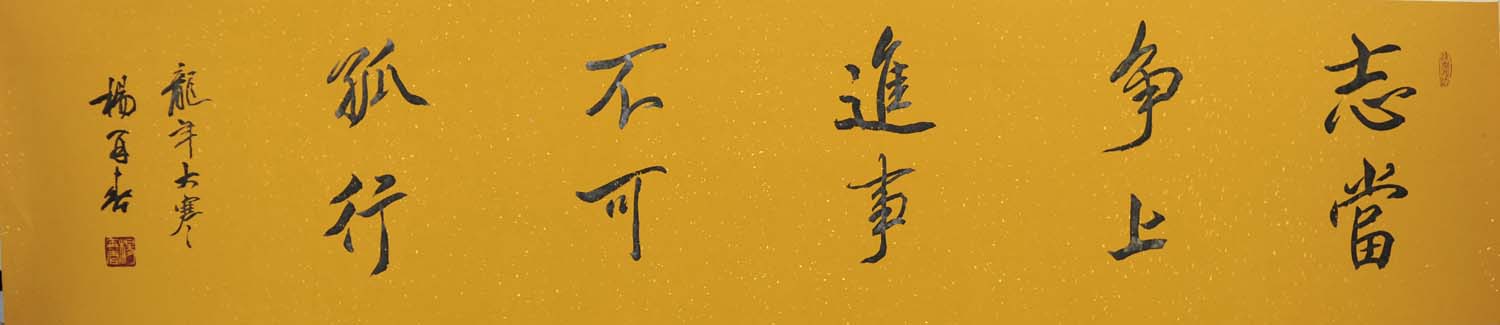 志當
争上
進事
不可
孤行
龍年大寒
楊再春